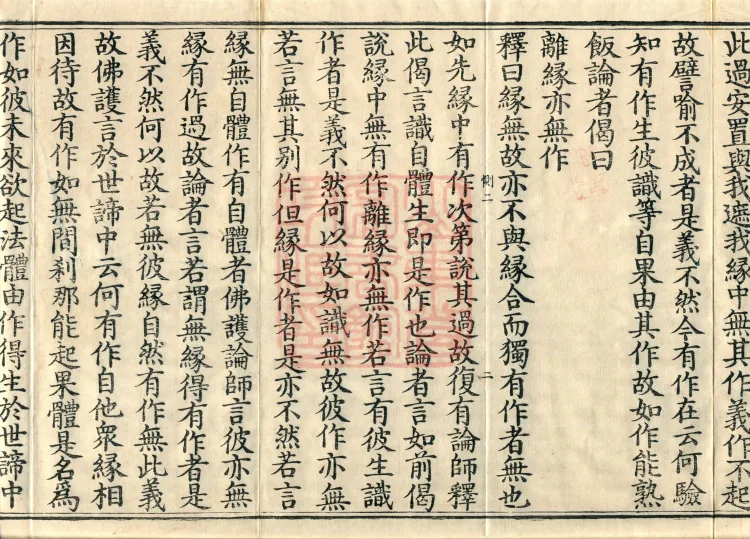 此過安置與我遮我緣中無其作義作不起
故譬喻不成者是義不然今有作在云何驗
知有作生彼識等自果由其作故如作能熟
飯論者偈曰
離緣亦無作
釋曰緣無故亦不與緣合而獨有作者無也
惻二 二
如先緣中有作次第說其過故復有論師釋
此偈言識自體生即是作也論者言如前偈
說緣中無有作離緣亦無作若言有彼生識
作者是義不然何以故如識無故彼作亦無
若言無其別作但緣是作者是亦不然若言
緣無自體作有自體者佛護論師言彼亦無
緣有作過故論者言若謂無緣得有作者是
義不然何以故若無彼緣自然有作無此義
故佛護言於世諦中云何有作自他衆緣相
因待故有作如無間剎那能起果體是名爲
作如彼未來欲起法體由作得生於世諦中